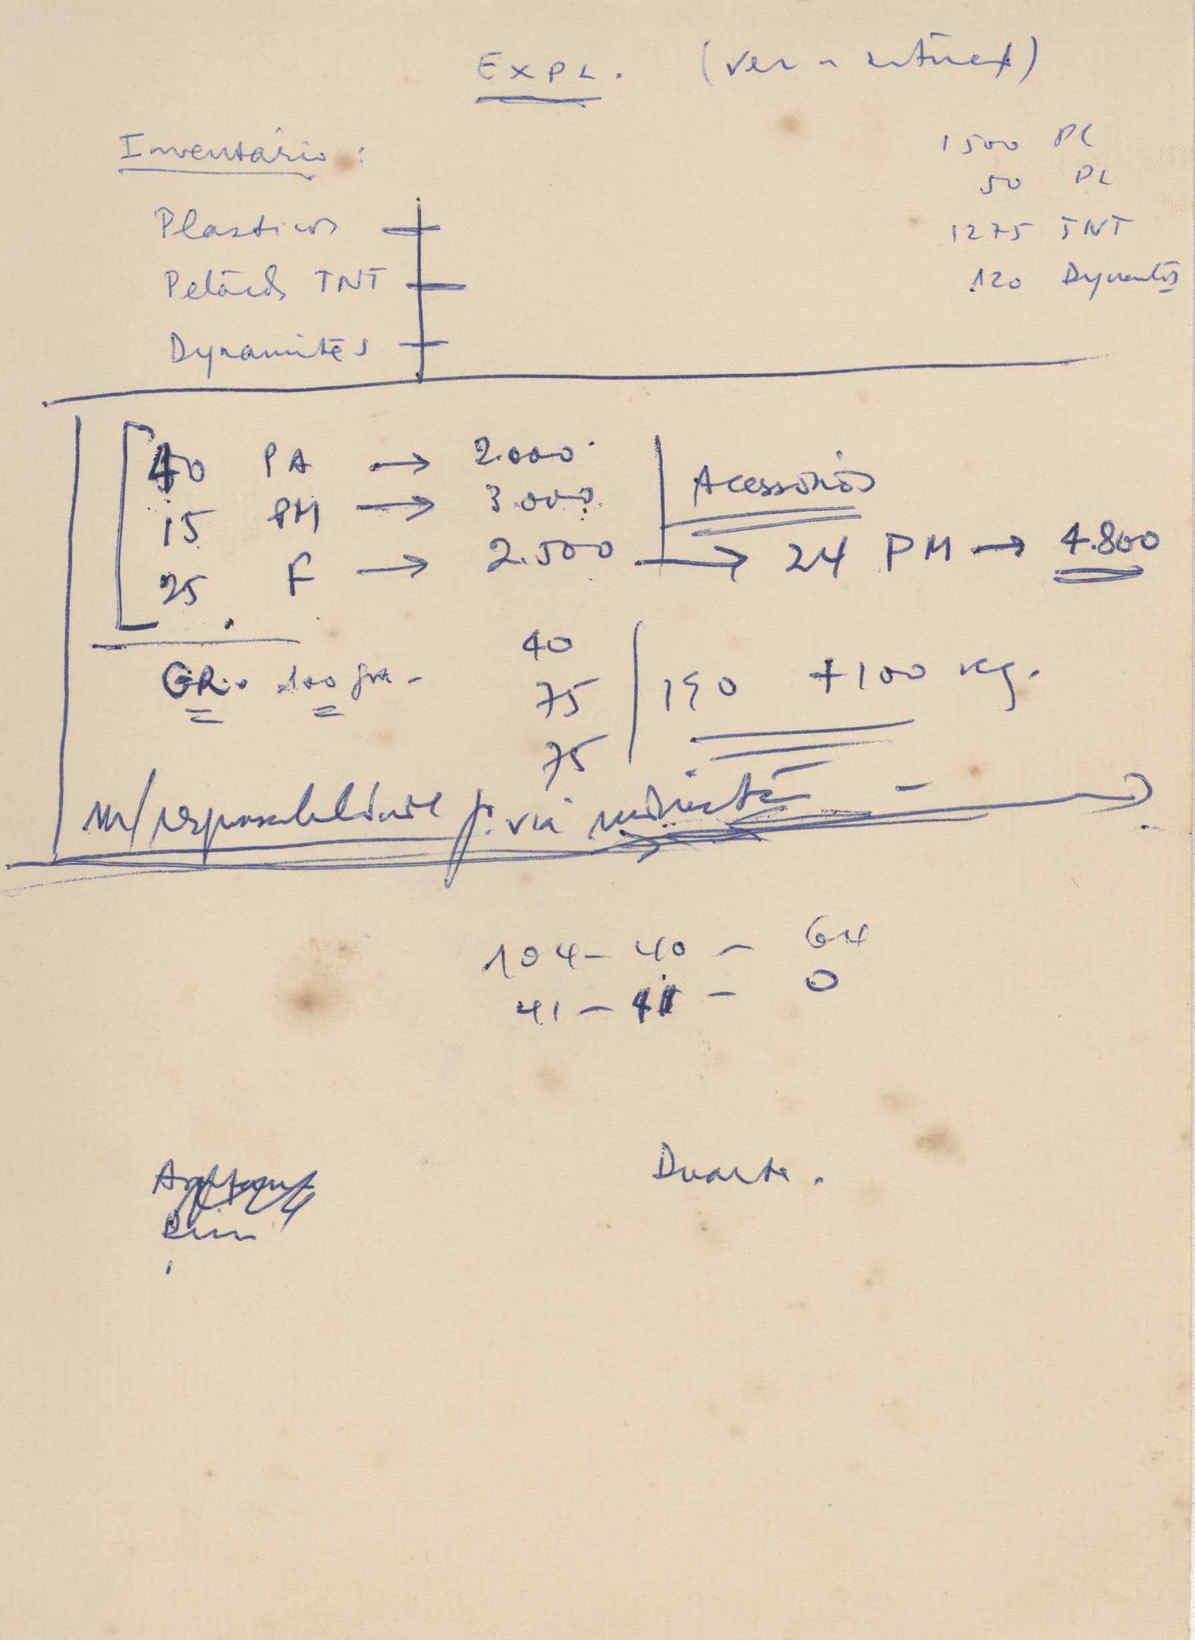 EXPL. (ver
Inventário:
1500 PL
50 PL
Plasticos
1275 TNT
Petácds TNT
120 Dynamites
Dynamites
40 PA → 2.000
15 PM → 3.000
25 F → 2.500
Acessórios
→ 24 PM → 4.800
GR. 100 gra -
40
75
75
190 +100 Kg.
m/responsabilidade p. via indirecta -
104 - 40 - 64
41 - 41 - 0
Duarte.